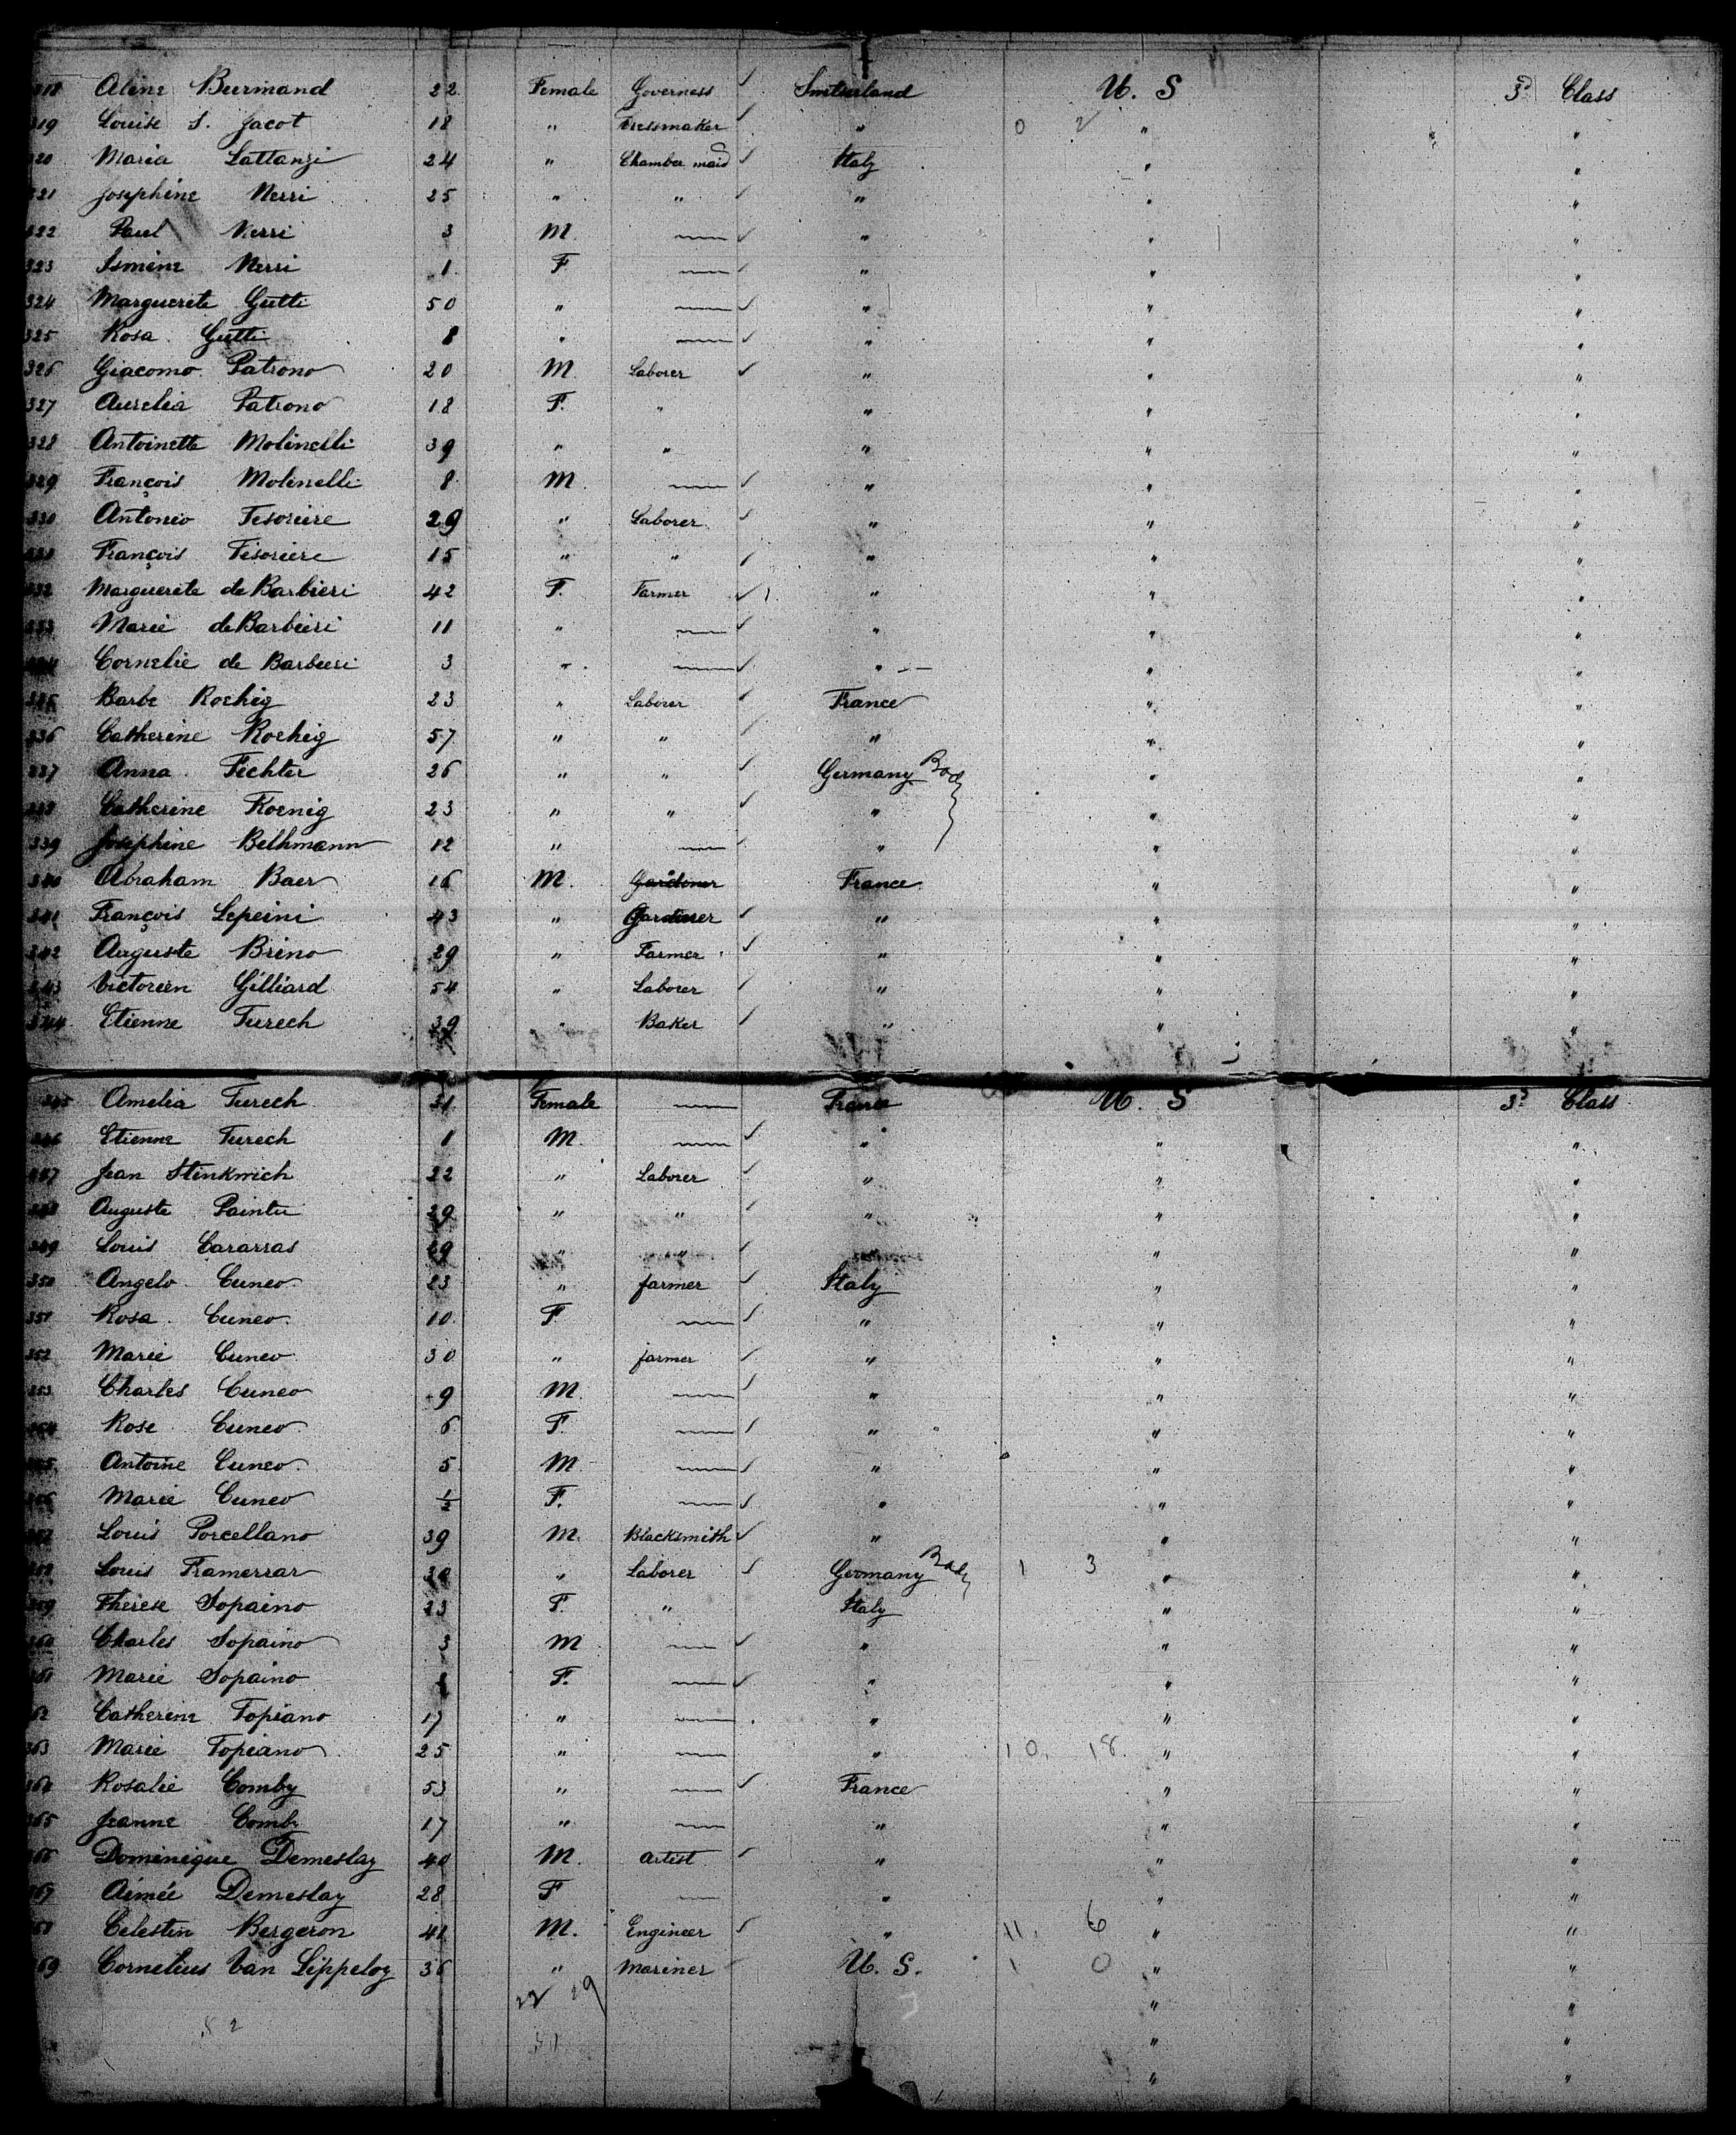 318 Aline Burmand 22 Female Governess ✓ Switserland U. S 3d Class
319 Louise S. Jacot 18 " Dressmaker ✓ " 0 2 " "
320 Maria Lattanzi 24 " Chamber maid ✓ Italy " "
321 Josephine Nerri 25 " " ✓ " " "
322 Paul Nerri 3 M. — ✓ " " "
323 Ismene Nerri 1 F — ✓ " " "
324 Marguerite Gutti 50 " — ✓ " " "
325 Rosa Gutti 8 " — ✓ " " "
326 Giacomo Patrono 20 M Laborer ✓ " " "
327 Aurelia Patrono 18 F. " " " "
328 Antoinette Molinelli 39 " " " " "
329 François Molinelli 8 M — ✓ " " "
330 Antonio Tesoriere 29 " Laborer ✓ " " "
331 François Tesoriere 15 " " ✓ " " "
332 Marguerite de Barbieri 42 F. Farmer ✓ " " "
333 Marie de Barbieri 11 " — ✓ " " "
334 Cornelie de Barbieri 3 " — ✓ " " "
335 Barbe Roehig 23 " Laborer ✓ France " "
336 Catherine Roehig 57 " " ✓ " " "
337 Anna Fechter 26 " " ✓ Germany " "
338 Catherine Koenig 23 " " ✓ " " "
339 Josephine Belhmann 12 " — " " "
340 Abraham Baer 16 M. Gardener France " "
341 François Lepeini 43 " Gardener ✓ " " "
342 Auguste Brino 29 " Farmer ✓ " " "
343 Victorien Gilliard 54 " Laborer ✓ " " "
344 Etienne Turech 39 " Baker ✓ " " "
345 Amelia Turech 31 Female — France U. S 3d Class
346 Etienne Turech 1 M. — ✓ " " "
347 Jean Stinkwich 22 " Laborer ✓ " " "
348 Auguste Paintu 29 " " ✓ " " "
349 Louis Cararras 29 " " ✓ " " "
350 Angelo Cuneo 23 " farmer ✓ Italy " "
351 Rosa Cuneo 10 F — ✓ " " "
352 Marie Cuneo 30 " farmer ✓ " " "
353 Charles Cuneo 9 M. — ✓ " " "
354 Rose Cuneo 6 F. — ✓ " " "
355 Antoine Cuneo 5 M — ✓ " " "
356 Marie Cuneo ½ F. — ✓ " " "
357 Louis Porcellano 39 M. Blacksmith ✓ " " "
358 Louis Framerrar " Laborer ✓ Germany 1 3 " "
359 Therese Sopaino 23 F. " Italy " "
360 Charles Sopaino 3 M — ✓ " " "
361 Marie Sopaino F. — ✓ " " "
362 Catherine Topiano 17 " — " " "
363 Marie Topiano 25 " — " 10. 18. " "
364 Rosalie Comby 53 " — ✓ France " "
365 Jeanne Comby 17 " — " " "
366 Dominique Demeslay 40 M. Artist ✓ " " "
367 Aimée Demeslay 28 F — " " "
368 Celestin Bergeron 41 M. Engineer ✓ " 11. 6 " "
369 Cornelius Van Lippeloy 36 " Mariner U. S. 1 0 " "
" "
" "
" "